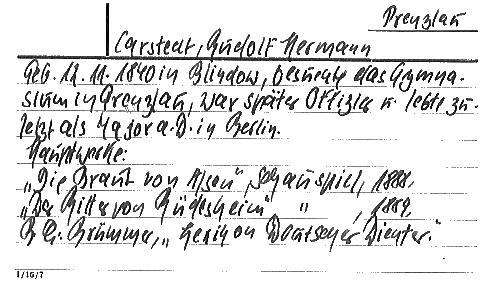 Prenzlau
Carstedt, Rudolf Hermann
Geb. 12. 11. 1840 in Blindow, besuchte das Gymna-
sium in Prenzlau, war später Offizier u. lebte zu-
letzt als Major a. D. in Berlin.
Hauptwerke:
„Die Braut von Alsen“, Schauspiel, 1888.
„Der Ritter von Rüdesheim“ " , 1889.
Brümmer, „Lexikon Deutscher Dichter.“
1/16/7